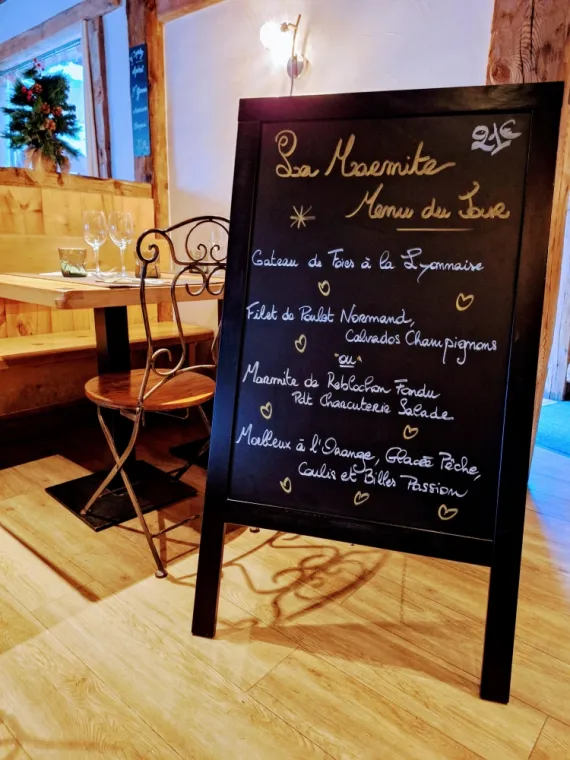 21€
La Marmite
Menu du Jour
Gateau de Foies à la Lyonnaise
Filet de Poulet Normand,
Calvados Champignons
"ou"
Marmite de Reblochon Fondu
Pdt Charcuterie Salade
Moelleux à l'Orange, Glacée Pêche,
Coulis et Billes Passion